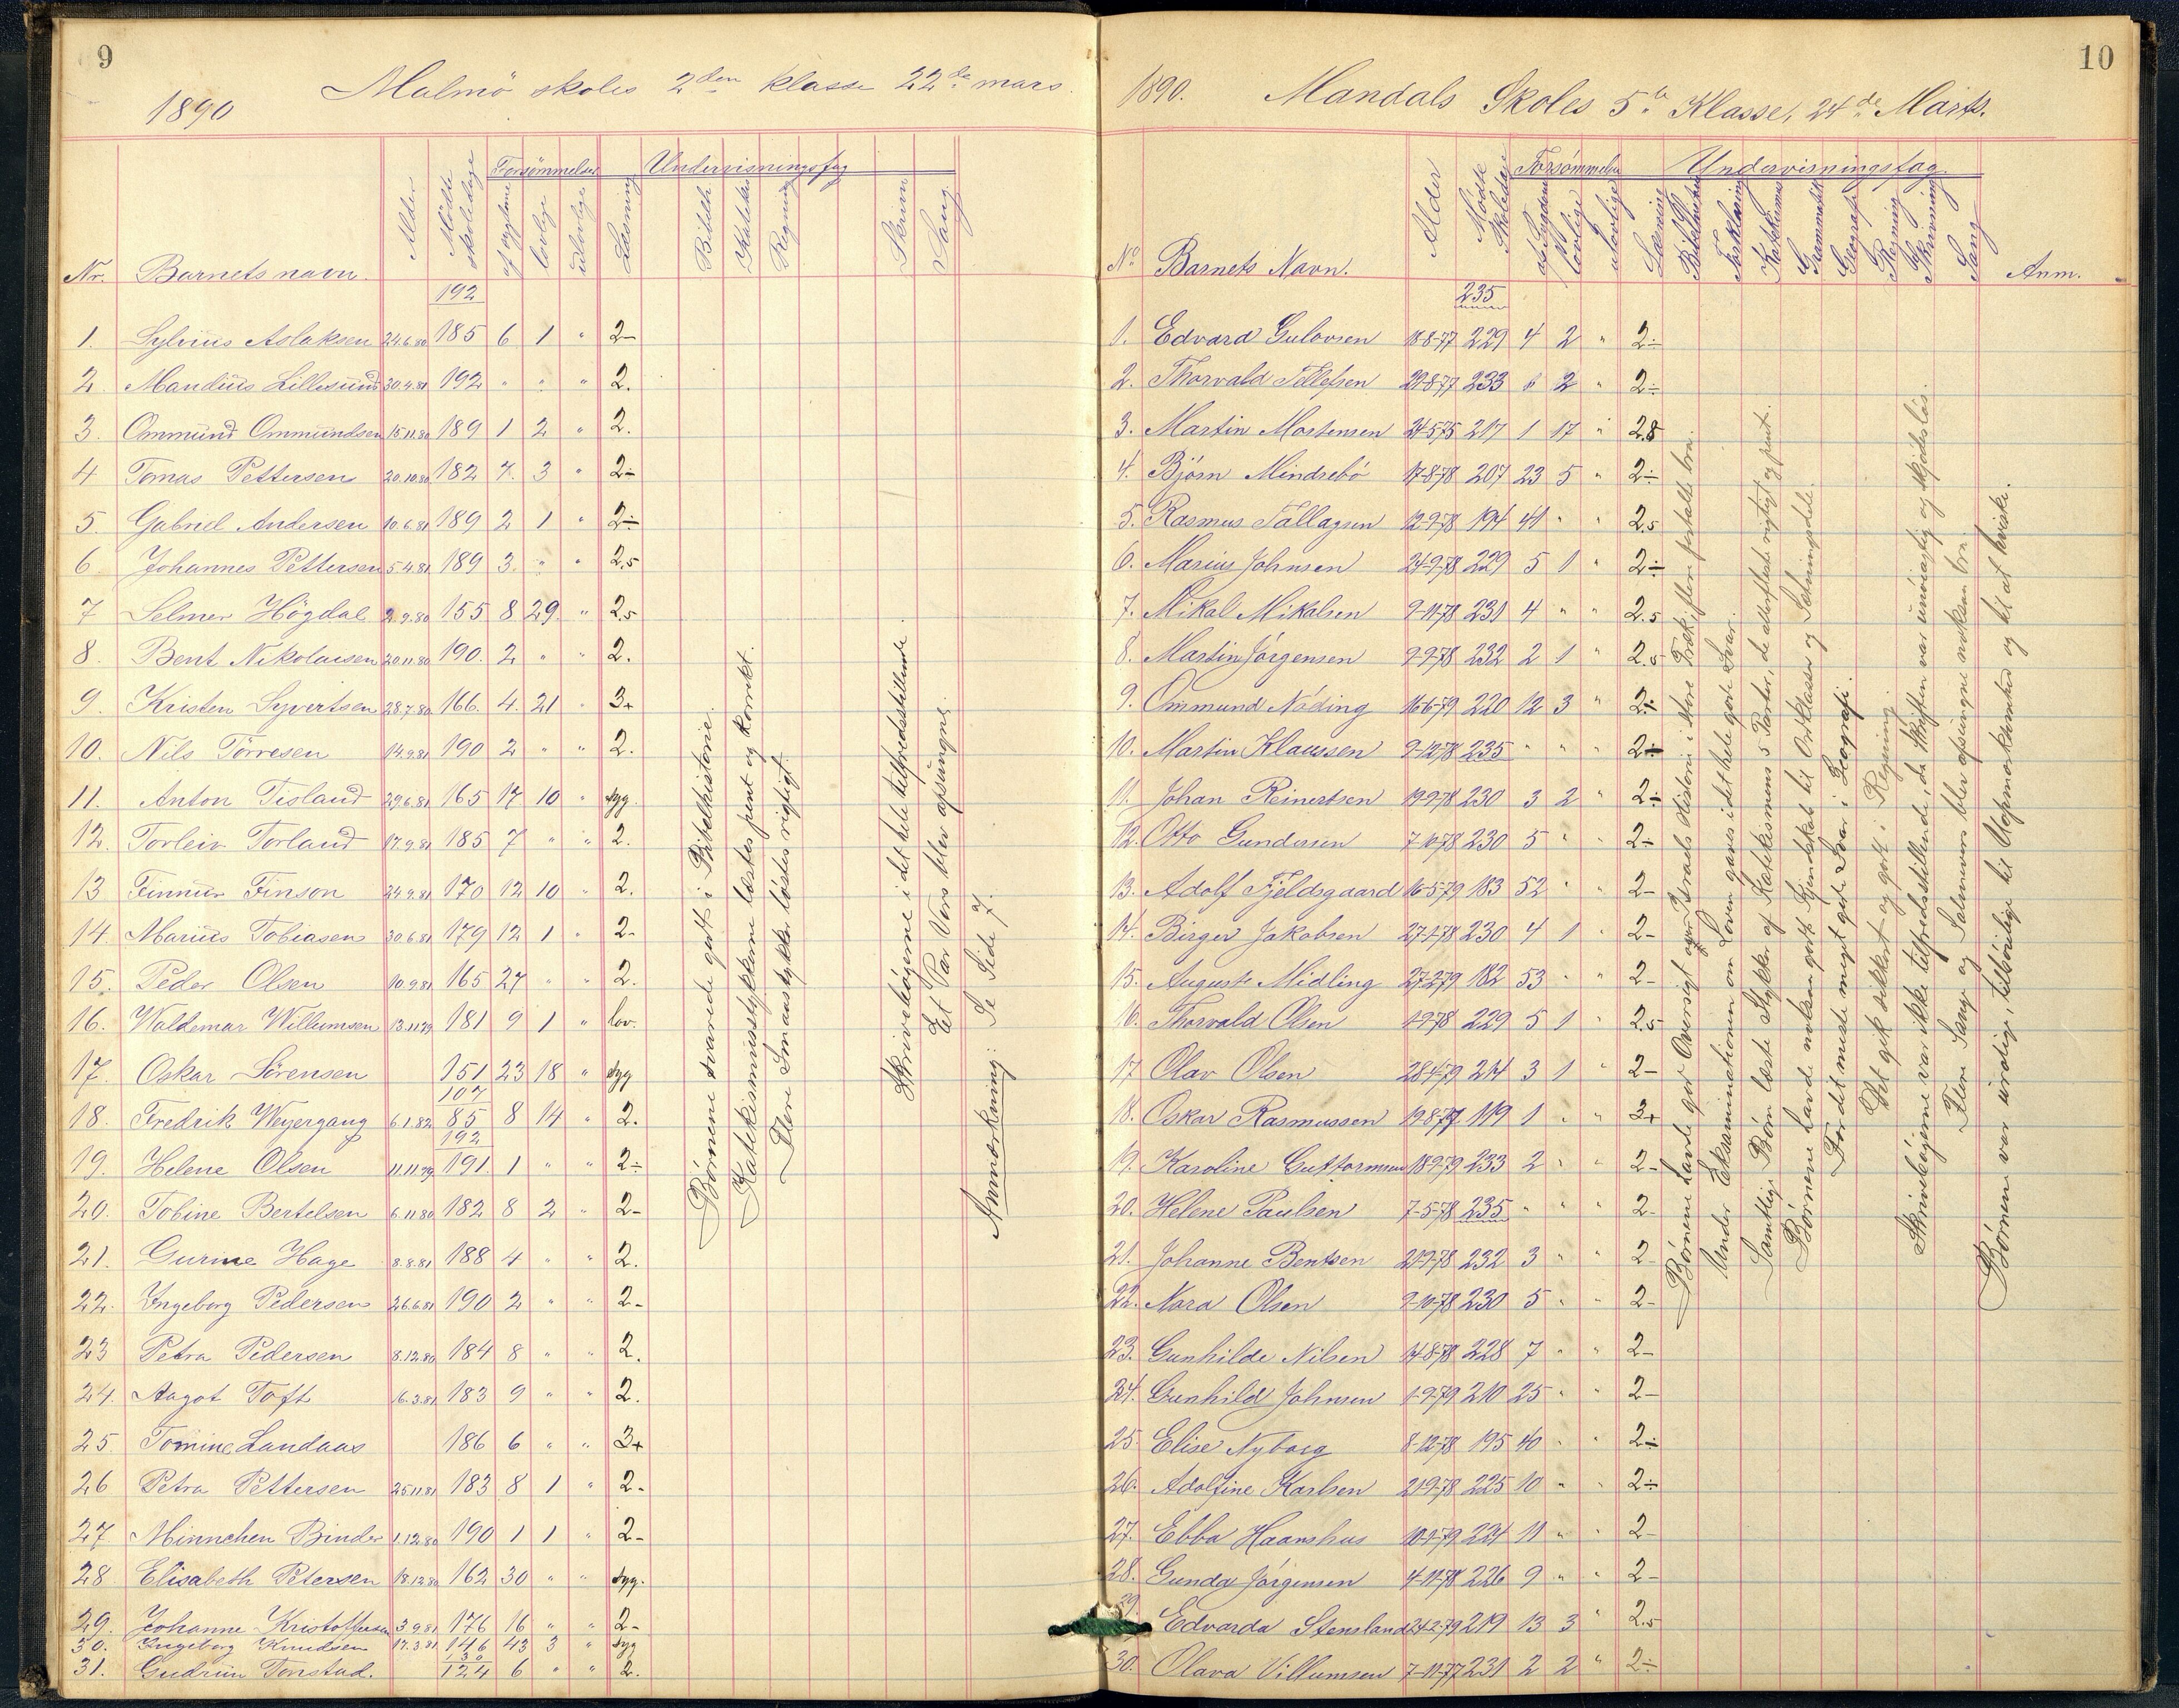 9
1890 Malmö skoles 2den klasse 22de mars.
Forsömmelser Undervisningsfag
Nr. Barnets navn. Alder Mödte skoledage af sygdom lovlige ulovlige Læsning Bibelh. Katekis. Regning Skrivn. Sang.
192
1. Sylvius Aslaksen 24.6.80 185 6 1 " 2-
2. Mandius Lillesund 30.4.81 192 " " " 2.
3. Ommund Ommundsen 15.11.80 189 1 2 " 2.
4 Tomas Pettersen 20.10.80 182 7. 3 " 2÷
5 Gabriel Andersen 10.6.81 189 2 1 " 2÷
6 Johannes Pettersen 5.4.81 189 3. " " 2,5
7 Selmer Högdal 2.9.80 155 8 29 " 2,5
8. Bent Nikolaisen 20.11.80 190. 2 " " 2.
9. Kristen Syvertsen 28.7.80 166. 4. 21 " 3+
10. Nils Törresen 14.9.81 190 2 " " 2.
11. Anton Tisland 29.6.81 165 17 10 " syg.
12. Torleiv Torland 17.9.81 185 7 " " 2.
13 Finnur Finson 24.9.81 170 12 10 " 2.
14. Marius Tobiasen 30.6.81 179 12 1 " 2-
15. Peder Olsen 10.9.81 165 27 " " 2.
16. Waldemar Willumsen 13.11.79 181 9 1 " lov.
17. Oskar Sörensen 151 23 18 " syg
107
18. Fredrik Weyergang 6.1.82 85 8 14 " 2.
192
19. Helene Olsen 11.11.79 191. 1 " " 2÷
20. Tobine Bertelsen 6.11.80 182 8 2 " 2-
21. Gurine Hage 8.8.81 188 4 " " 2.
22. Ingeborg Pedersen 26.6.81 190 2 " " 2-
23 Petra Pedersen 8.12.80 184 8 " " 2.
24. Aagot Toft 16.3.81 183 9 " " 2.
25 Tomine Landaas 186 6 " " 3+
26 Petra Pettersen 25.11.81 183 8 1 " 2-
27. Minnchen Binder 1.12.80 190 1 1 " 2-
28. Elisabeth Petersen 18.12.80 162 30 " " syg.
29. Johanne Kristoffersen 3.9.81 176 16 " " 2-
30. Ingeborg Knudsen 17.3.81 146 43 3 " syg
130
31. Gudrun Tonstad. 124 6 " " 2.
Börnene svarede godt i Bibelhistorie.
Katekismusstykkerne læstes pent og korrekt.
Flere Smaastykker löstes rigtigt.
Skrivebögerne i det hele tilfredsstillende.
Et Par Vers blev afsungne.
Anmærkning: Se Side 7.
10
1890. Mandals Skoles 5te Klasse, 24de Marts.
Forsömmelser Undervisningsfag.
No Barnets Navn. Alder Mödte Skoledage af Sygdom lovlige ulovlige Læsning Bibelhistorie Forklaring Katekismus Grammatik Geografi Regning Skrivning Sang Anm.
235
1. Edvard Gulovsen 18-8-77 229 4 2 " 2÷
2. Thorvald Tellefsen 29-8-77 233 " 2 " 2÷
3. Martin Mortensen 24-5-75 217 1 17 " 2.8
4. Björn Mindrebö 17-8-78 207 23 5 " 2÷
5. Rasmus Tallagsen 12-9-78 194 41 " " 2.5
6. Marius Johnsen 24-9-78 229 5 1 " 2÷
7. Mikal Mikalsen 9-11-78 231 4 " " 2.5
8. Martin Jörgensen 9-9-78 232 2 1 " 2.5
9. Ommund Nöding 16-6-79 220 12 3 " 2÷
10. Martin Klaussen 9-12-78 235 " " " 2÷
11. Johan Reinertsen 19-9-78 230 3 2 " 2÷
12. Otto Gundersen 7-10-78 230 5 " " 2÷
13. Adolf Fjeldsgaard 16-5-79 183 52 " " 2-
14. Birger Jakobsen 27-1-78 230 4 1 " 2-
15. August Midling 27-2-79 182 53 " " 2-
16. Thorvald Olsen 1-9-78 229 5 1 " 2.5
17 Olav Olsen 28-4-79 214 3 1 " 2-
18. Oskar Rasmussen 19-8-77 119 1 " " 3+
19. Karoline Guttormsen 18-9-79 233 2 " " 2-
20. Helene Paulsen 7-5-78 235 " " " 2-
21. Johanne Bentsen 21-9-78 232 3 " " 2-
22. Nora Olsen 9-10-78 230 5 " " 2-
23. Gunhilde Nilsen 14-8-78 228 7 " " 2-
24. Gunhild Johnsen 1-9-79 210 25 " " 2-
25. Elise Nyborg 8-12-78 195 40 " " 2÷
26. Adolfine Karlsen 21-9-78 225 10 " " 2÷
27. Ebba Haanshus 10-1-79 224 11 " " 2-
28. Gunda Jörgensen 4-11-78 226 9 " " 2-
29. Edvarda Stensland 24-2-79 219 13 3 " 2.5
30. Olava Villumsen 7-11-77 231 2 2 " 2÷
Börnene havde god Oversigt over Israels Historie i store Træk; flere fortalte bra.
Under Eksaminationen om Loven gaves i det hele gode Svar.
Samtlige Börn læste Stykker af Katekismens 5 Parter, de allerfleste rigtigt og pent.
Börnene havde noksaa godt Kjendskab til Ordklasser og Sætningsdele.
For det meste meget gode Svar i Geografi.
Det gik sikkert og godt i Regning
Skrivebögerne var ikke tilfredsstillende, da Skriften var unöiagtig og skjödeslös.
Flere Sange og Salmevers blev afsungne noksaa bra.
Börnene var urolige, tilböilige til Uopmærksomhed og til at hviske.